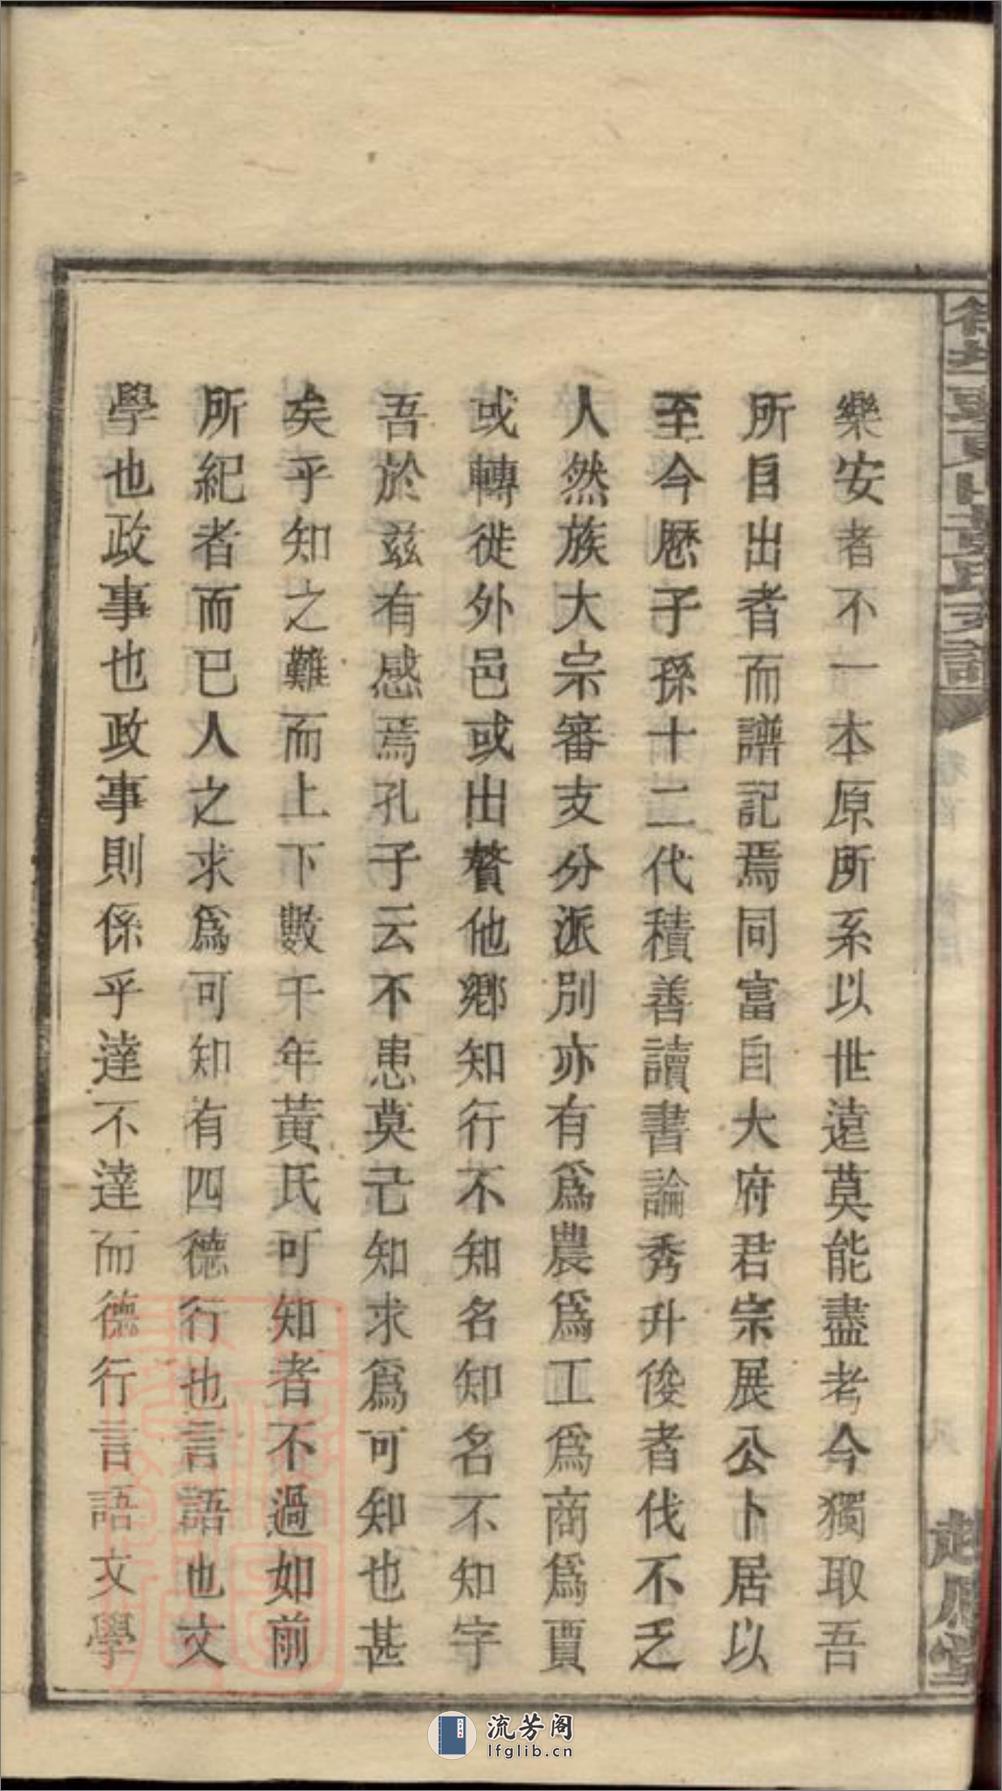 樂安者不一本原所系以世遠莫能盡考今獨取吾
所自出者而譜記焉同富自大府君宗展公卜居以
至今歷子孫十二代積善讀書論秀升俊者伐不乏
人然族大宗審支分派別亦有爲農爲工爲商爲賈
或轉徙外邑或出贅他鄉知行不知名知名不知字
吾於兹有感焉孔子云不患莫己知求爲可知也甚
矣乎知之難而上下數千年黃氏可知者不過如前
所紀者而已人之求爲可知有四德行也言語也文
學也政事也政事則係乎達不達而德行言語文學
流芳阁
lfglib.cn